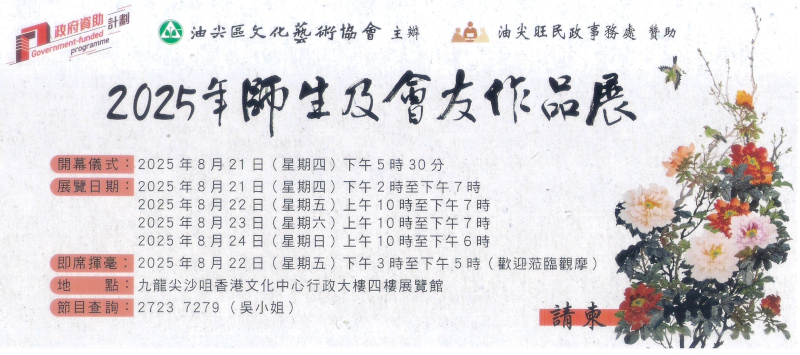 政府資助計劃
Government-funded
programme
油尖區文化藝術協會 主辦
油尖旺民政事務處 贊助
2025年師生及會友作品展
開幕儀式：2025年8月21日（星期四）下午5時30分
展覽日期：2025年8月21日（星期四）下午2時至下午7時
2025年8月22日（星期五）上午10時至下午7時
2025年8月23日（星期六）上午10時至下午7時
2025年8月24日（星期日）上午10時至下午6時
即席揮毫：2025年8月22日（星期五）下午3時至下午5時（歡迎蒞臨觀摩）
地　　點：九龍尖沙咀香港文化中心行政大樓四樓展覽館
節目查詢：2723 7279（吳小姐）
請柬